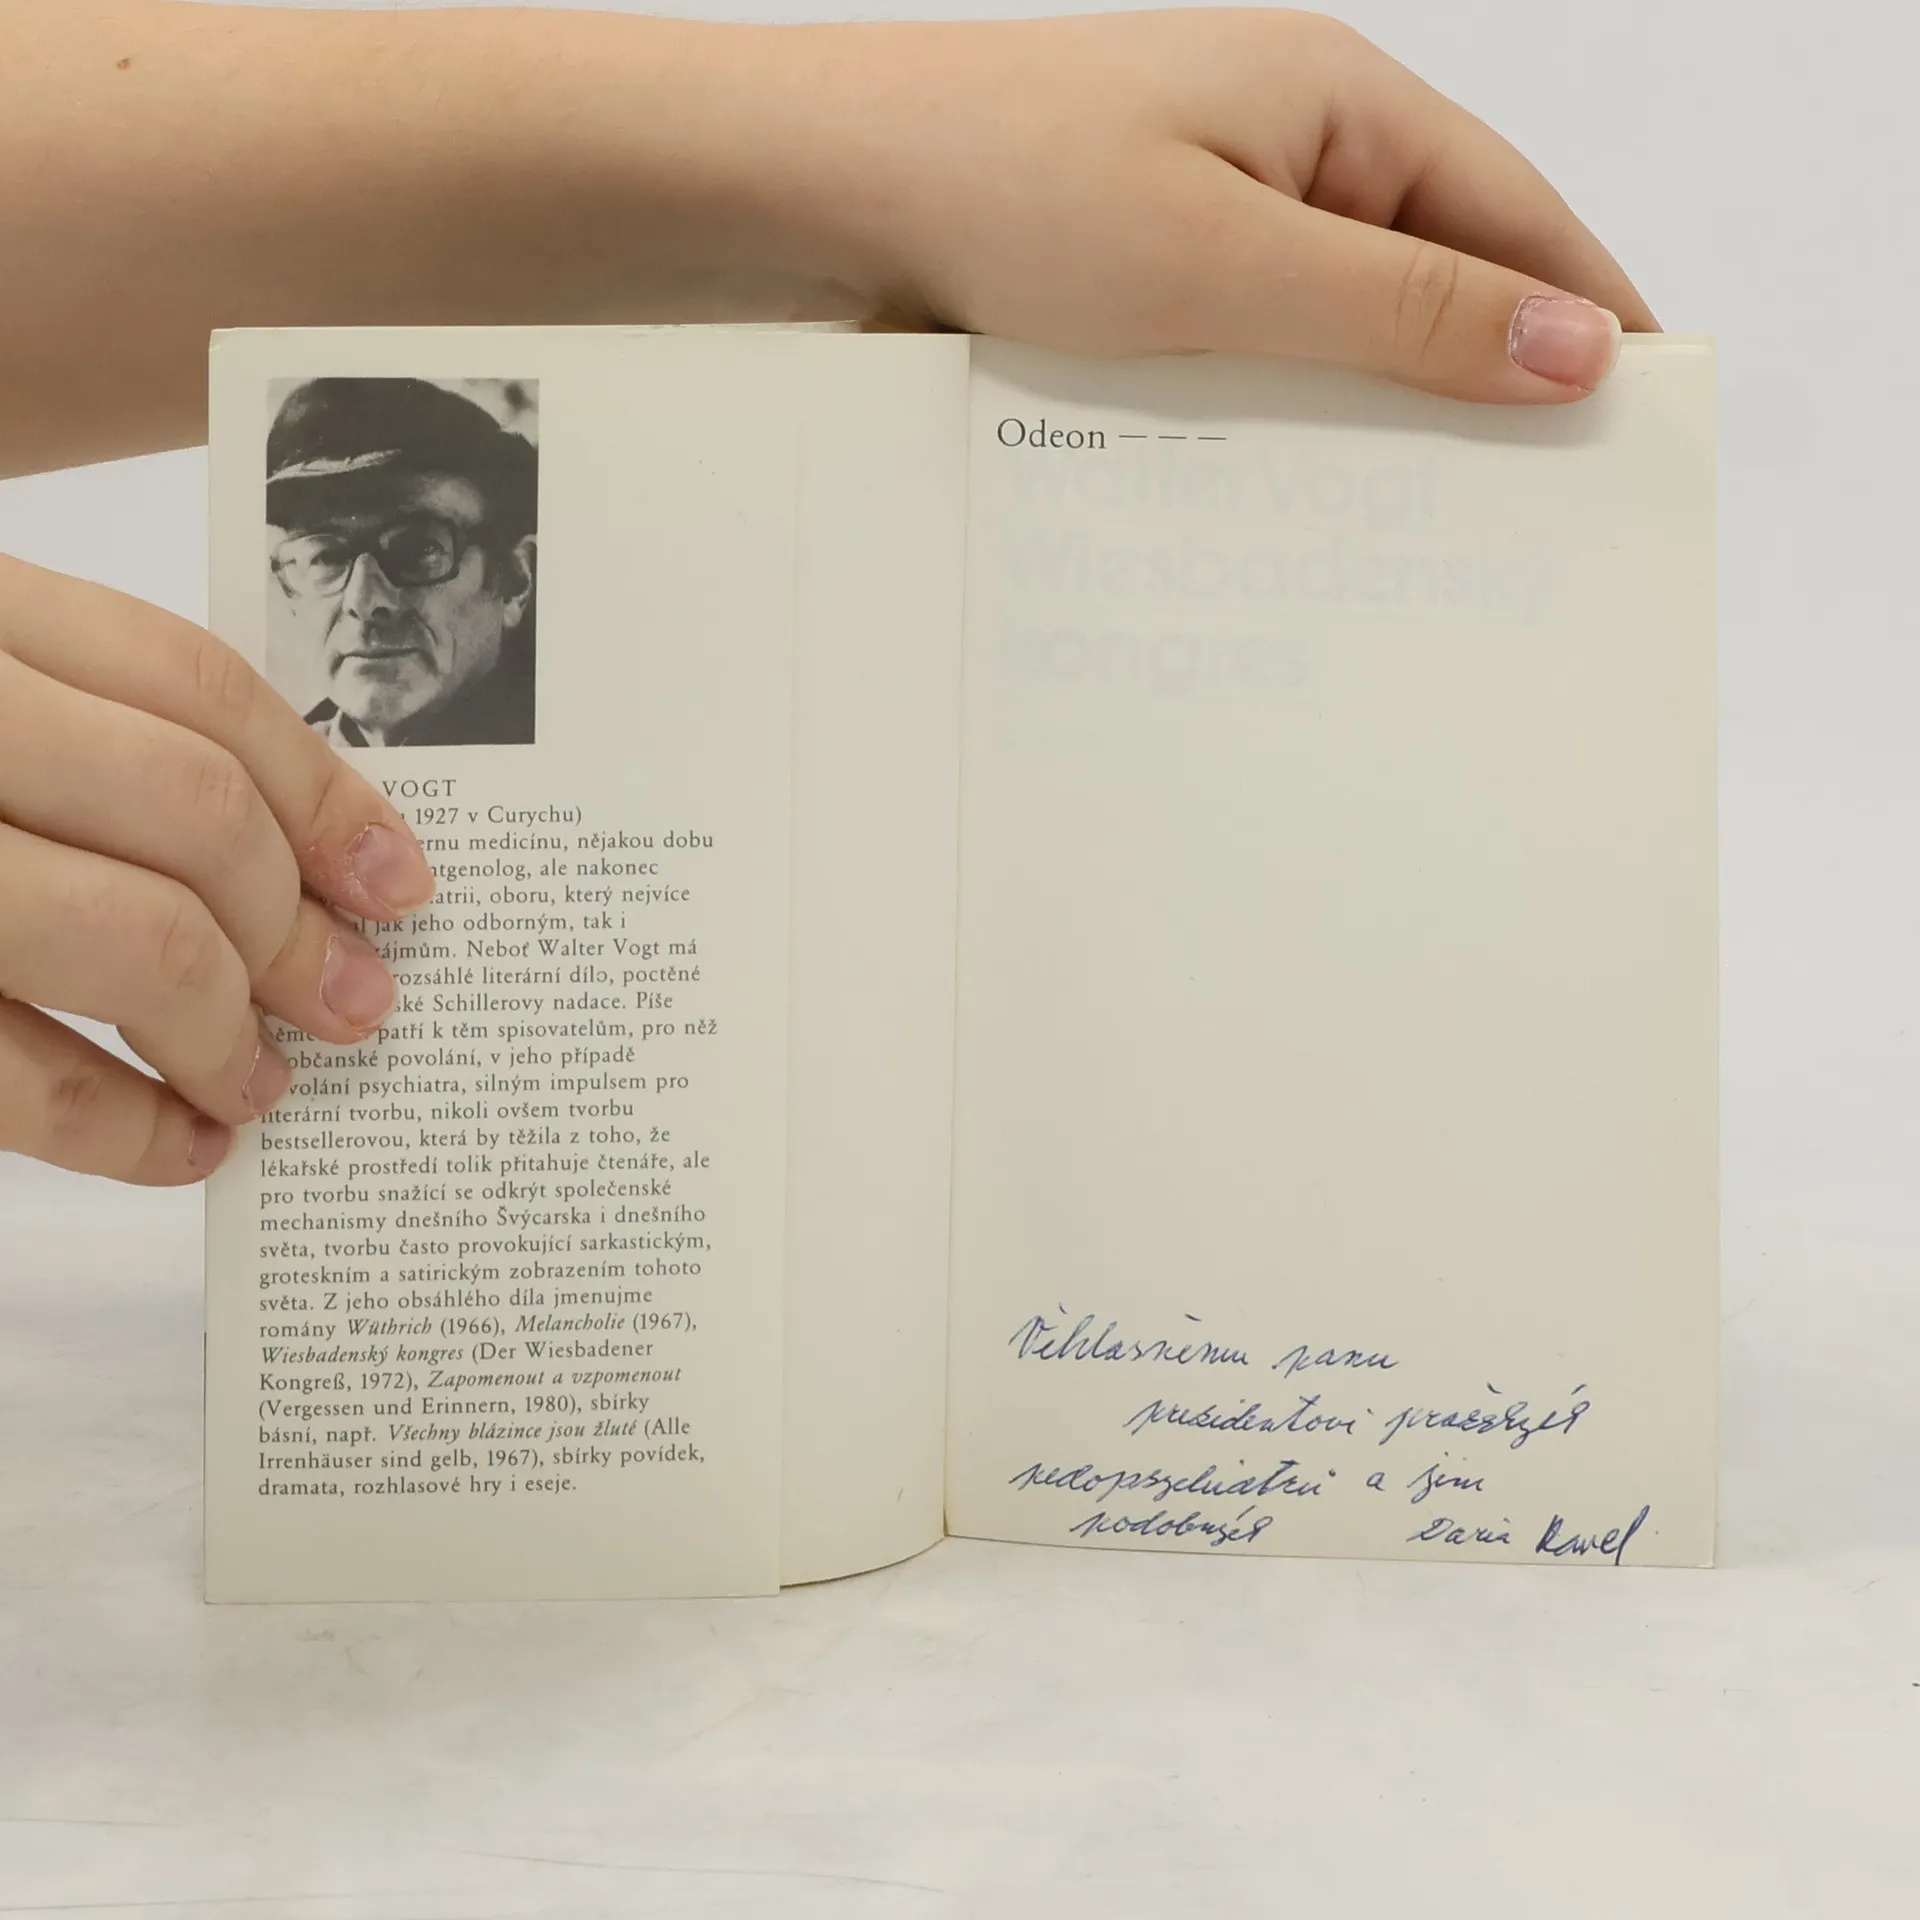 VOGT
1927 v Curychu)
medicínu, nějakou dobu
ale nakonec
oboru, který nejvíce
jak jeho odborným, tak i
Neboť Walter Vogt má
rozsáhlé literární dílo, poctěné
Schillerovy nadace. Píše
patří k těm spisovatelům, pro něž
občanské povolání, v jeho případě
psychiatra, silným impulsem pro
literární tvorbu, nikoli ovšem tvorbu
bestsellerovou, která by těžila z toho, že
lékařské prostředí tolik přitahuje čtenáře, ale
pro tvorbu snažící se odkrýt společenské
mechanismy dnešního Švýcarska i dnešního
světa, tvorbu často provokující sarkastickým,
groteskním a satirickým zobrazením tohoto
světa. Z jeho obsáhlého díla jmenujme
romány Wüthrich (1966), Melancholie (1967),
Wiesbadenský kongres (Der Wiesbadener
Kongreß, 1972), Zapomenout a vzpomenout
(Vergessen und Erinnern, 1980), sbírky
básní, např. Všechny blázince jsou žluté (Alle
Irrenhäuser sind gelb, 1967), sbírky povídek,
dramata, rozhlasové hry i eseje.
Odeon – – –
Walter Vogt
Wiesbadenský
kongres
Věhlasnému panu
presidentovi
pedopsychiatrů a jim
podobných Daria